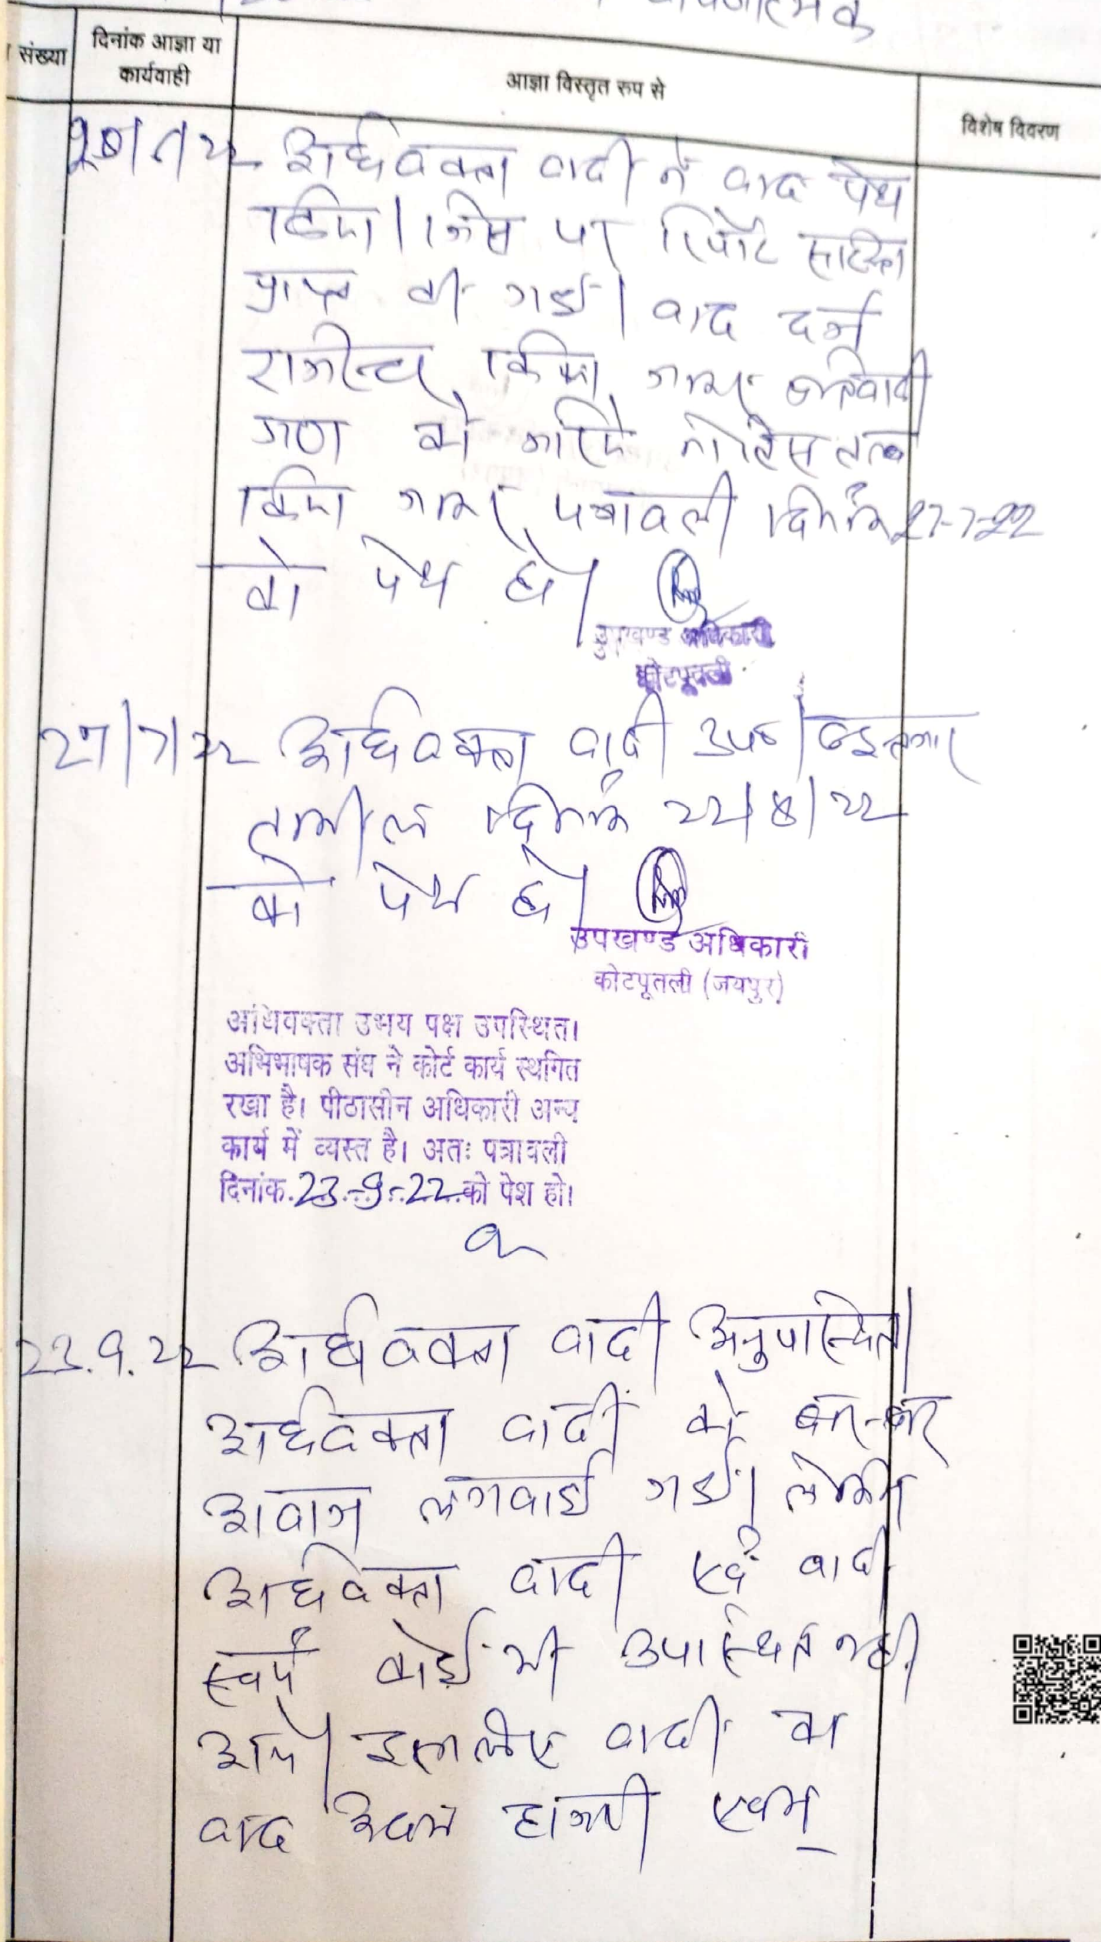 संख्या
दिनांक आज्ञा या
कार्यवाही
आज्ञा विस्तृत रुप से
विशेष विवरण
अधिवक्ता वादी ने वाद पेश
किया। जिस पर रिपोर्ट
प्राप्त की गई। वाद दर्ज
किया जाकर प्रतिवादी
गण को जरिये नोटिस तलब
किया जाकर पत्रावली दिनांक 27-7-22
को पेश हो।
उपखण्ड अधिकारी
कोटपूतली
27/7/22 अधिवक्ता वादी उप०। इन्तजार
तामील दिनांक 22/8/22
को पेश हो।
उपखण्ड अधिकारी
कोटपूतली (जयपुर)
अधिवक्ता उभय पक्ष उपस्थित।
अभिभाषक संघ ने कोर्ट कार्य स्थगित
रखा है। पीठासीन अधिकारी अन्य
कार्य में व्यस्त है। अतः पत्रावली
दिनांक.23-9-22.को पेश हो।
23.9.22 अधिवक्ता वादी अनुपस्थित।
अधिवक्ता वादी को बार-बार
आवाज लगवाई गई। लेकिन
अधिवक्ता वादी एवं वादी
स्वयं कोई भी उपस्थित नही
आये। इसलिए वादी का
वाद अदम हाजरी एवम्